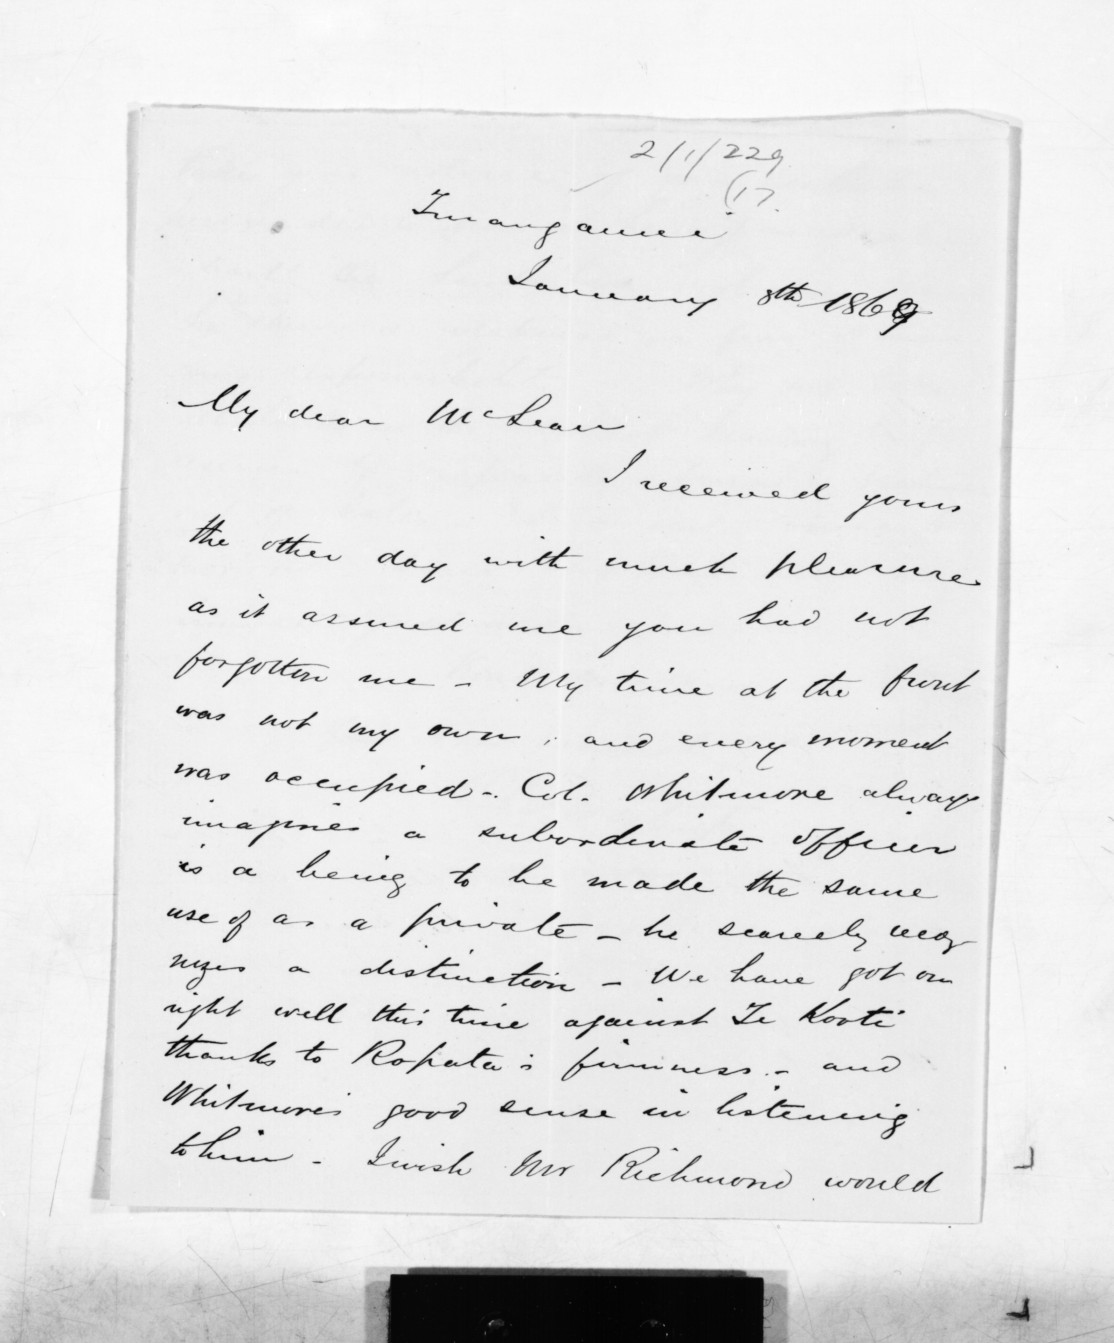 2/1/229
(17.
Turanganui
January 8th 1869
My dear McLean
I received yours
the other day with much pleasure
as it assured me you had not
forgotten me - My time at the front
was not my own, and every moment
was occupied - Col. Whitmore always
imagines a subordinate officer
is a being to be made the same
use of as a private - he scarcely recog-
nizes a distinction - We have got on
right well this time against Te Kooti
thanks to Ropata's firmness - and
Whitmore's good sense in listening
to him - I wish Mr Richmond would